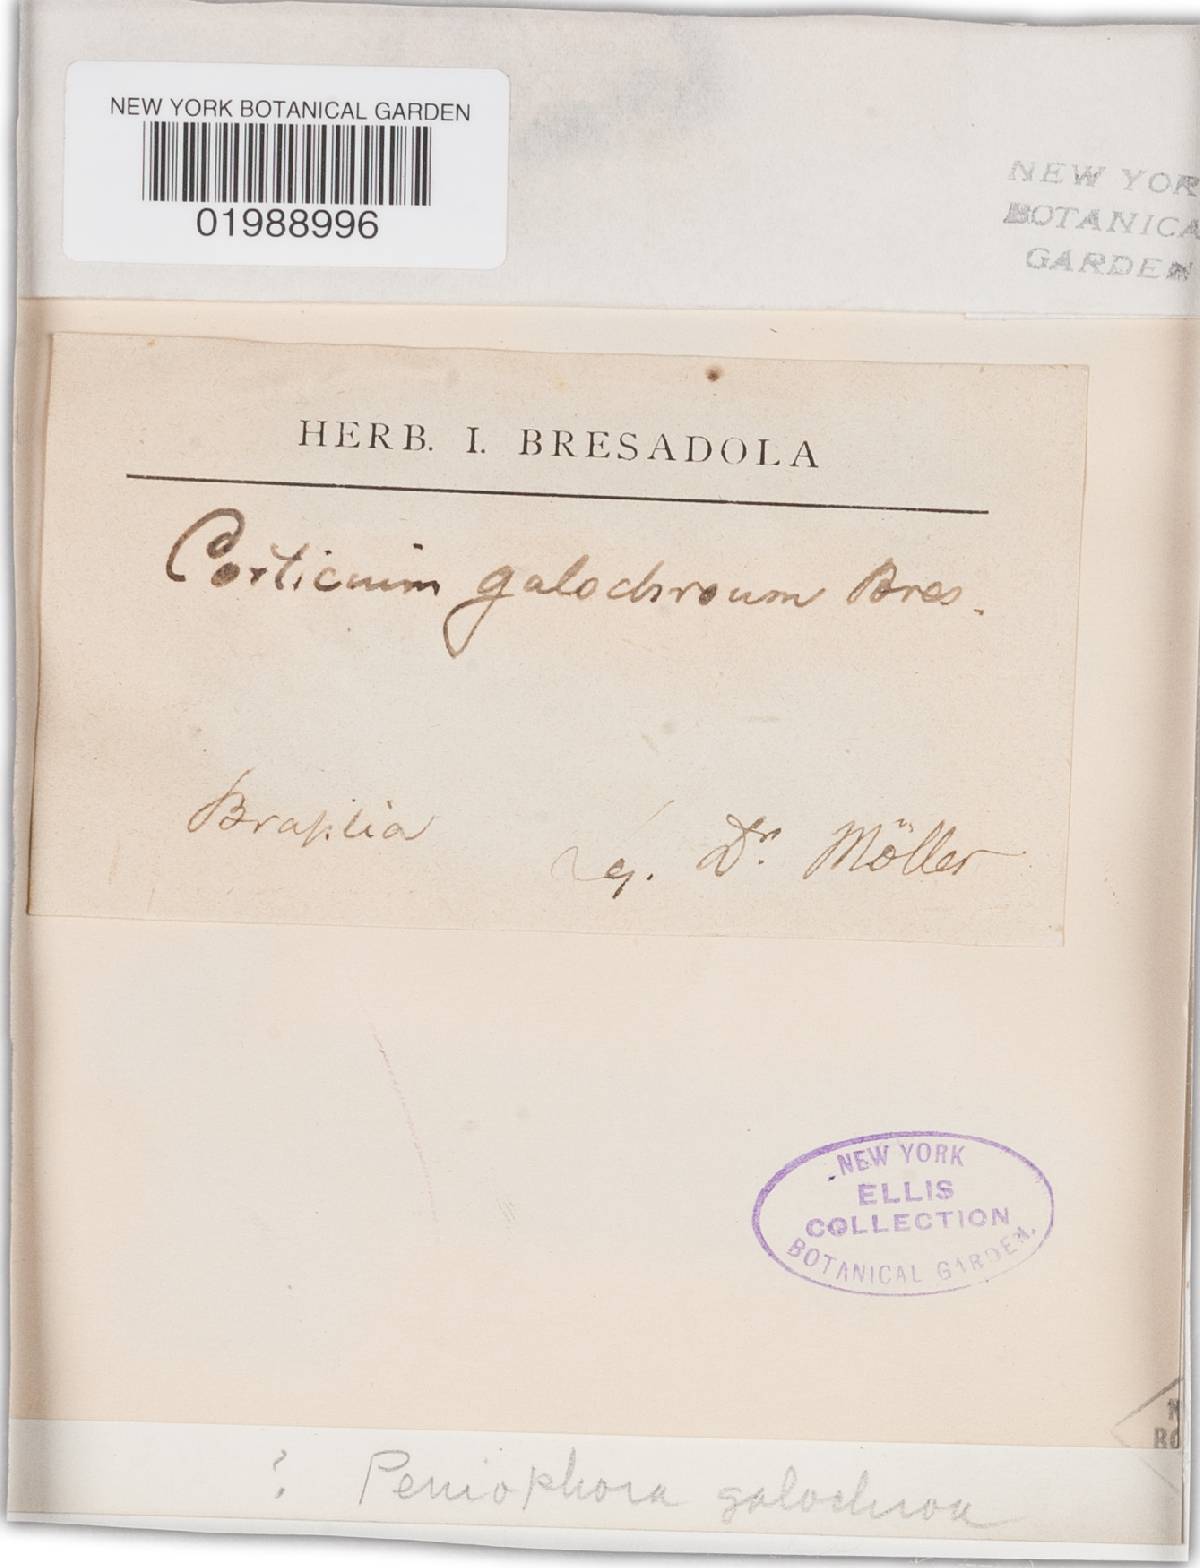 NEW YORK BOTANICAL GARDEN
01988996
NEW YOR
BOTANICA
GARDEN
HERB. I. BRESADOLA
Corticium galochroum Bres.
Brasilia
Leg. Dr. Möller
NEW YORK
ELLIS
COLLECTION
BOTANICAL GARDEN.
N
BO
? Peniophora galochroa